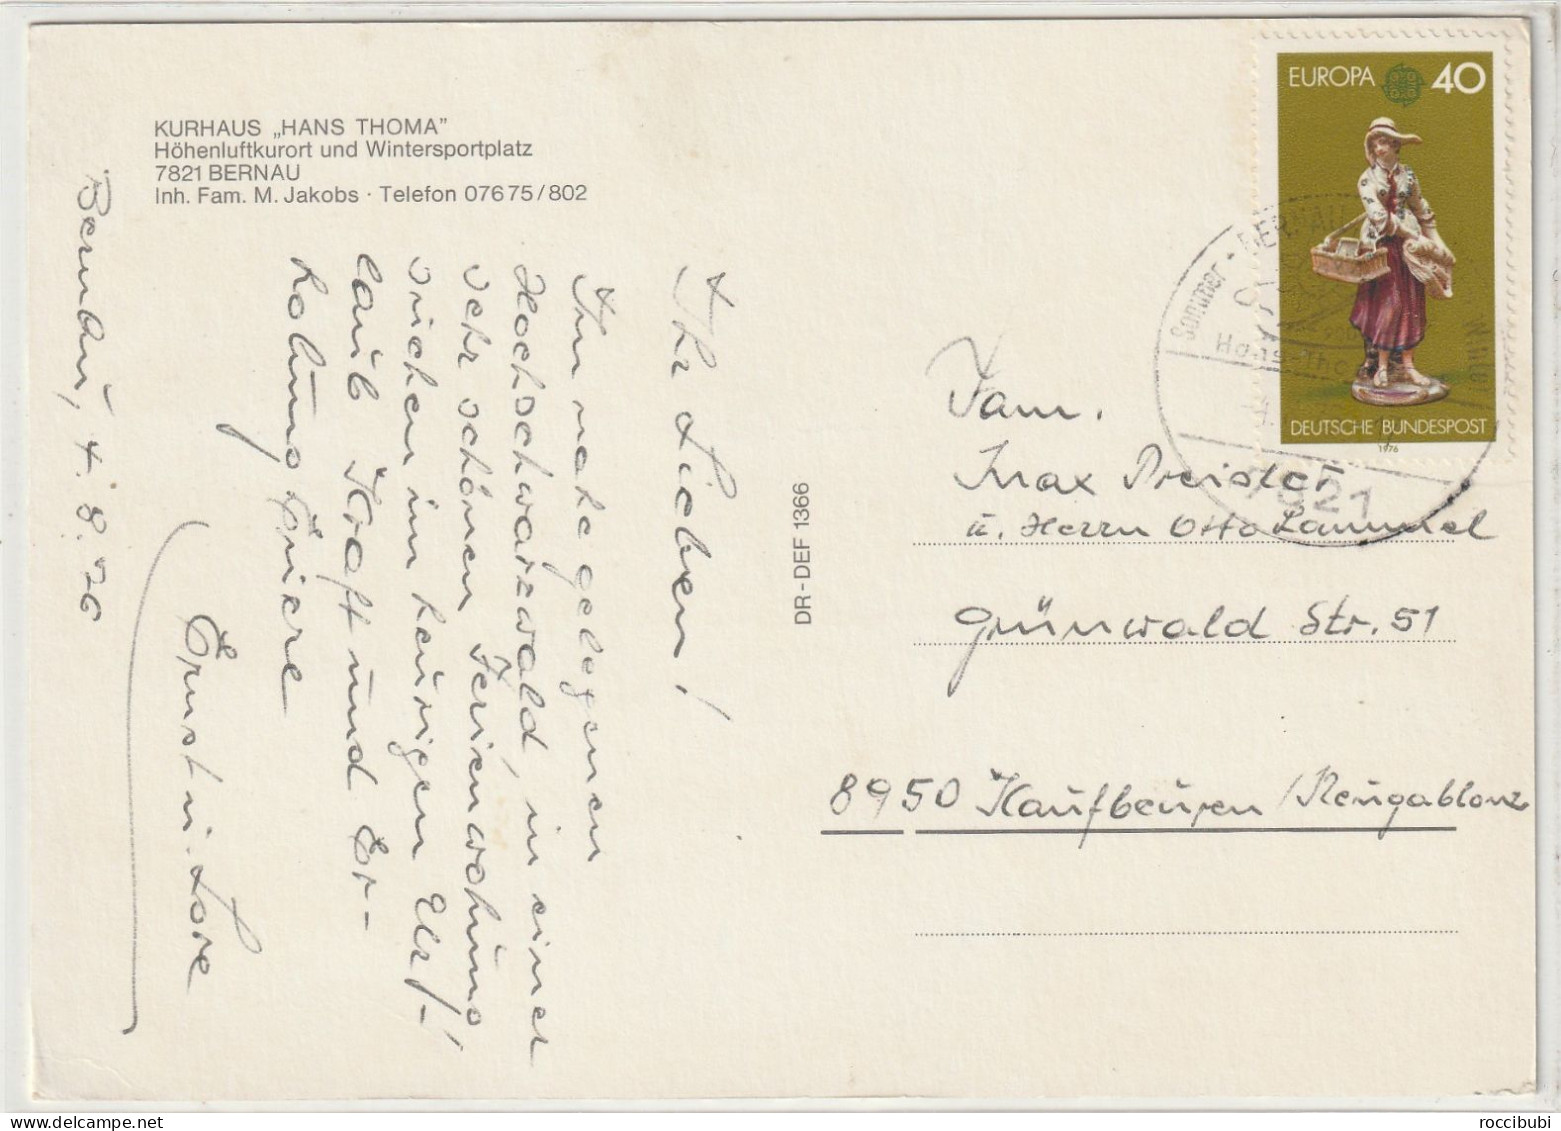 KURHAUS „HANS THOMA"
Höhenluftkurort und Wintersportplatz
7821 BERNAU
Inh. Fam. M. Jakobs · Telefon 07675/802
Bernau, 4.8.76
Ihr Lieben!
Im nahe gelegenen
Hochschwarzwald, in einer
sehr schönen Ferienwohnung
suchen im heurigen Url-
laub Kraft und Er-
holung Euere
Ernst u. Lore
DR-DEF 1366
EUROPA 40
DEUTSCHE BUNDESPOST
1976
Sommer - BERNAU
7821
Fam.
Max Preisler
u. Herrn Otto Lammel
Grünwald Str. 51
8950 Kaufbeuren/Neugablonz
roccibubi